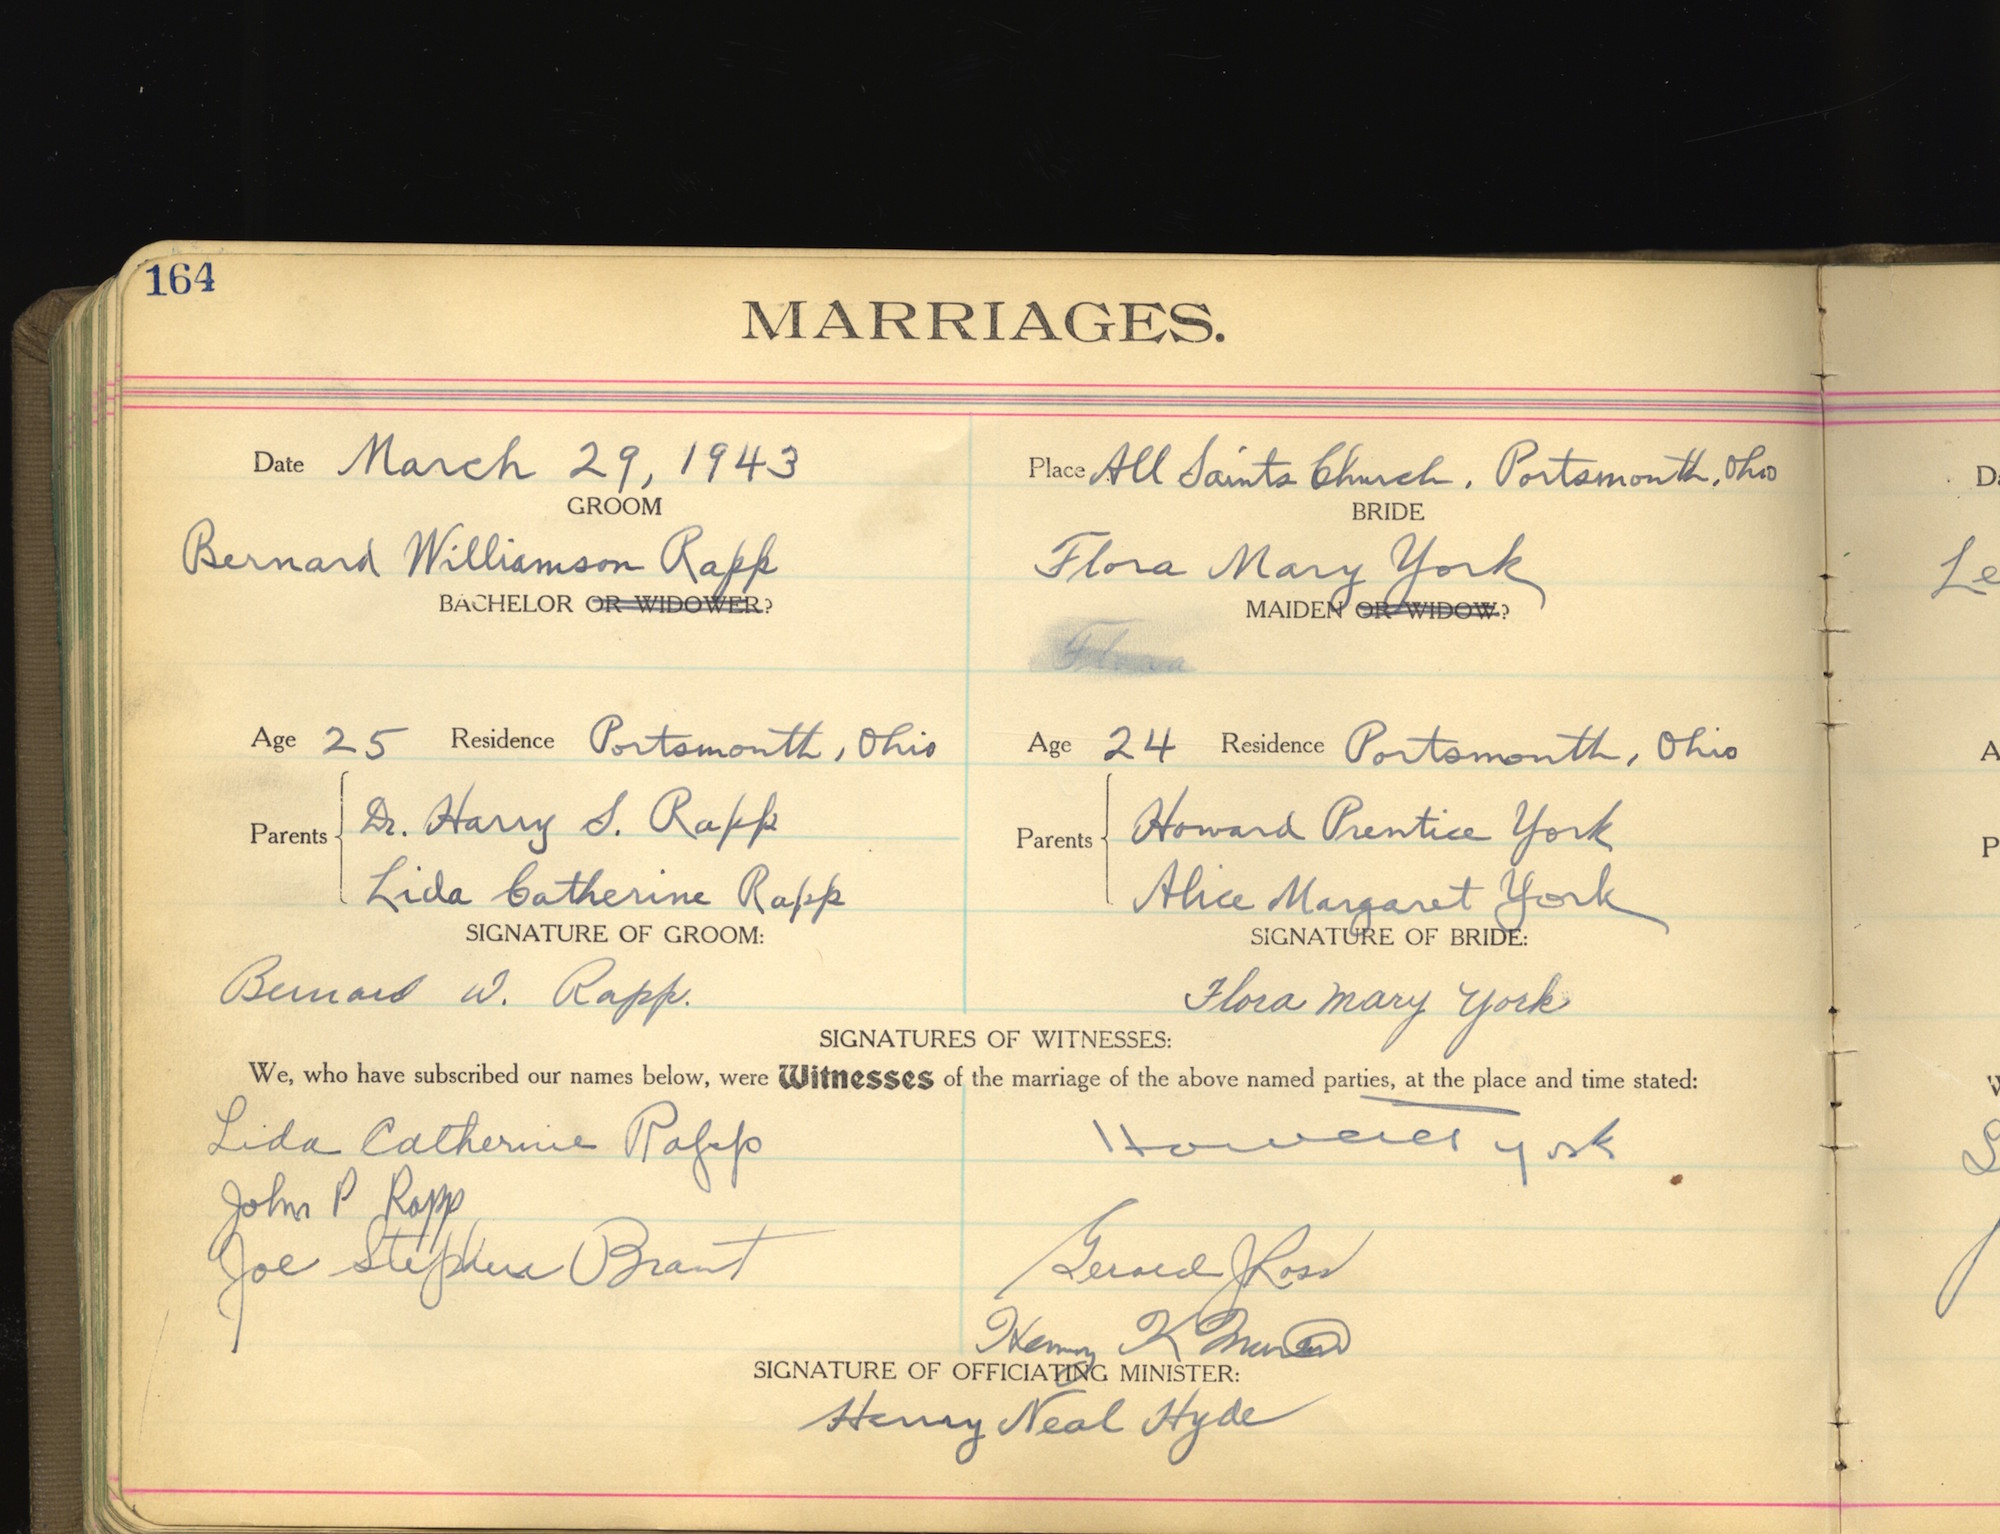 164
MARRIAGES.
Date March 29, 1943 Place All Saints Church, Portsmouth, Ohio
GROOM BRIDE
Bernard Williamson Rapp Flora Mary York
BACHELOR OR WIDOWER? MAIDEN OR WIDOW?
Flora
Age 25 Residence Portsmouth, Ohio Age 24 Residence Portsmouth, Ohio
Parents Dr. Harry S. Rapp Parents Howard Prentice York
Lida Catherine Rapp Alice Margaret York
SIGNATURE OF GROOM: SIGNATURE OF BRIDE:
Bernard W. Rapp. Flora Mary York
SIGNATURES OF WITNESSES:
We, who have subscribed our names below, were Witnesses of the marriage of the above named parties, at the place and time stated:
Lida Catherine Rapp Howard York
John P Rapp
Joe Stephen Brant Gerald J Ross
Henry K
SIGNATURE OF OFFICIATING MINISTER:
Henry Neal Hyde